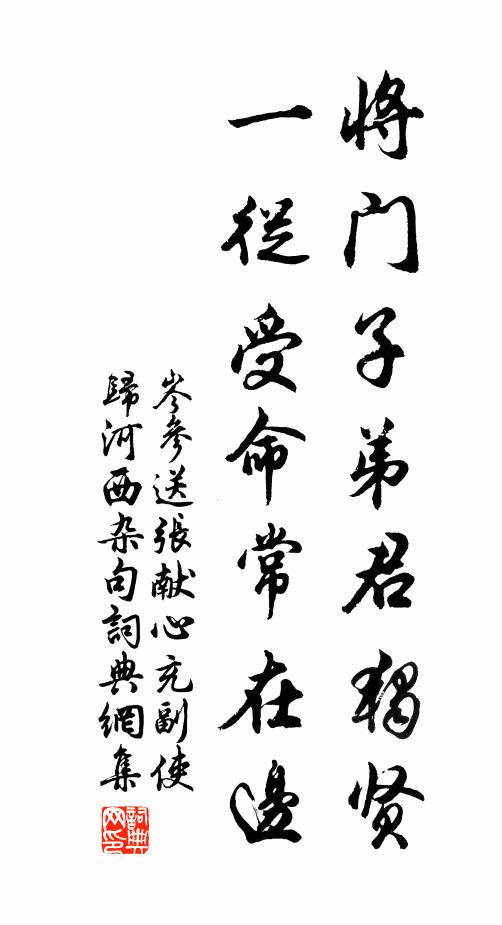 将门子弟君独贤
一從受命常在邊
岑參送張献心充副使
歸河西杂句詞典網集
詞典
网印